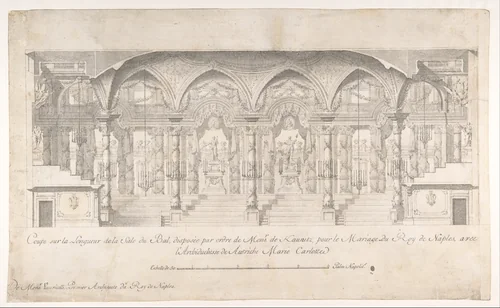 Coupe sur la Longueur de la Sale du Bal, disposée par ordre de Monsr. de Kaunitz, pour le Mariage du Roy de Naples avec
l'Archiduchesse de Autriche Marie Carlotte
de Palms Napolit.
de Monsr. Premier Architecte du Roy de Naples